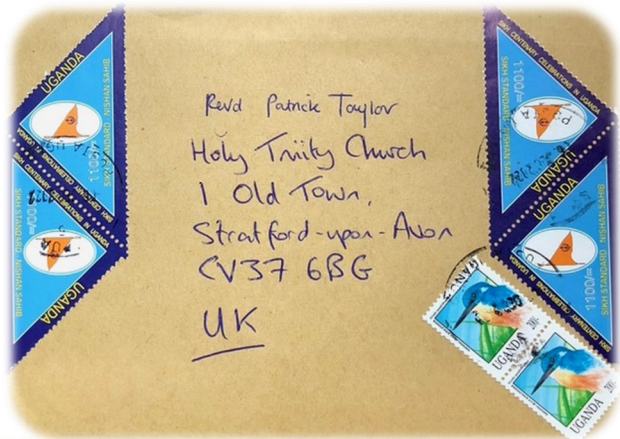 Revd Patrick Taylor
Holy Trinity Church
1 Old Town,
Stratford-upon-Avon
CV37 6BG
UK
UGANDA
SIKH STANDARD NISHAN SAHIB
SIKH CENTENARY CELEBRATIONS IN UGANDA
1100/=
UGANDA
SIKH STANDARD NISHAN SAHIB
SIKH CENTENARY CELEBRATIONS IN UGANDA
1100/=
SIKH CENTENARY CELEBRATIONS IN UGANDA
1100/=
SIKH STANDARD NISHAN SAHIB
UGANDA
UGANDA
1100/=
SIKH STANDARD NISHAN SAHIB
SIKH CENTENARY CELEBRATIONS IN UGANDA
UGANDA 200/=
UGANDA 200/=